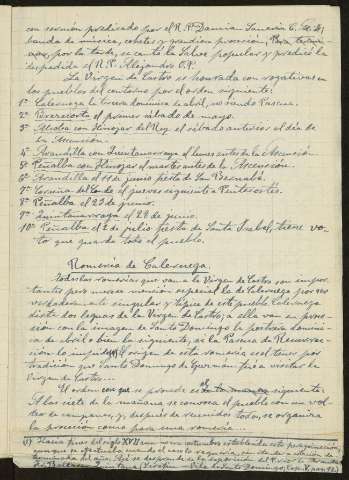 con sermón predicado por el R. P. Damian Janáriz C. M. F.,
banda de música, cohetes y grandiosa procesión. Para termi-
nar, por la tarde, se canta la Salve popular y predica la
despedida el R. P. Alejandro O. P.
La Virgen de Castro es honrada con rogativas en
los pueblos del contorno por el orden siguiente:
1º Caleruega la tercera dominica de abril, no siendo Pascua.
2º el primer sábado de mayo.
3º con Hinojar del Rey el sábado anterior al día de
la Ascensión.
4º Arandilla con Quintanarraya el lunes antes de la Ascensión
5º Peñalba con Hinojar el martes antes de la Ascensión.
6º Arandilla el 11 de junio fiesta de San Bernabé.
7º Coruña del Conde el jueves siguiente a Pentecostés.
8º Peñalba el 23 de junio.
9º Quintanarraya el 28 de junio.
10º Peñalba el 2 de julio fiesta de Santa Isabel, tiene vo-
to que guarda todo el pueblo.
Romería de Caleruega.
Todas las romerías que van a la Virgen de Castro son impor-
tantes pero merece mención especial la de Caleruega por ser
verdaderamente singular y típica de este pueblo. Caleruega
dista dos leguas de la Virgen de Castro; a ella van en proce-
sión con la imagen de Santo Domingo la tercera domini-
ca de abril o bien la siguiente, si la Pascua de Resurrec-
ción lo impide. (1) El origen de esta romería es el tener por
tradición que Santo Domingo de Guzmán fué a visitar la
Virgen de Castro.
El orden con que se procede es el siguiente.
A las siete de la mañana se convoca al pueblo con un vol-
teo de campanas, y, después de reunidos todos, se organiza
la procesión como para una romería.
(1) Hacia fines del siglo XVII era una costumbre establecida esta peregrinación,
aunque se efectuaba